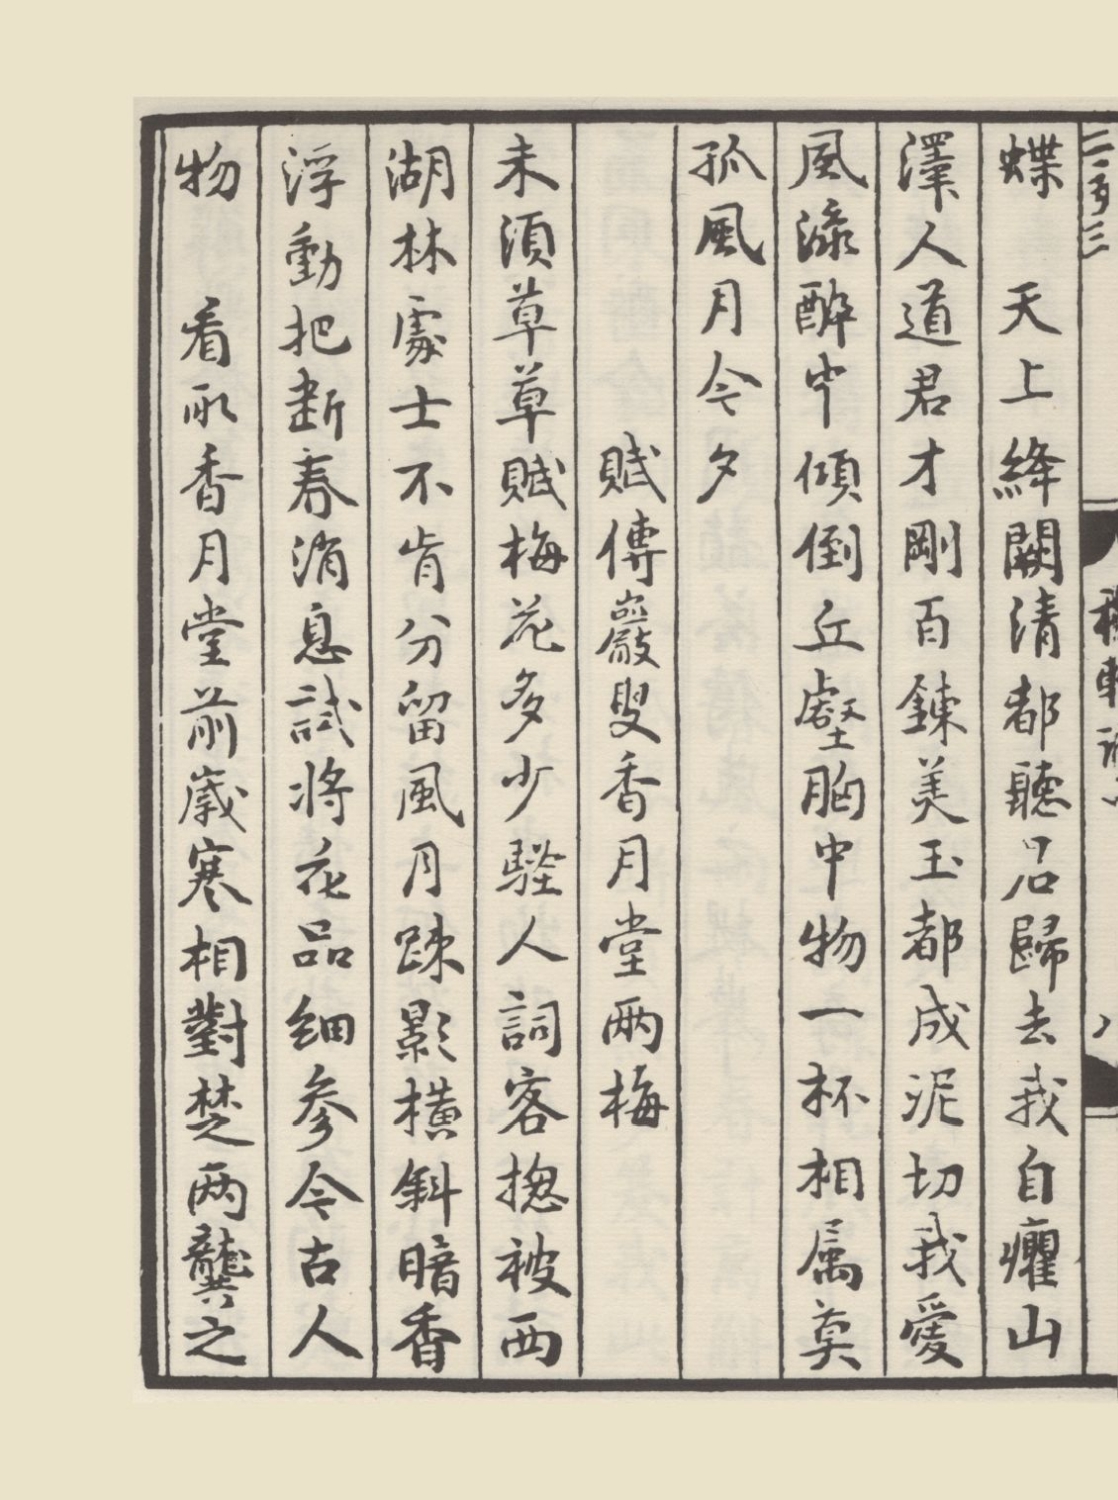 蝶　天上絳闕清都聽召歸去我自癯山
澤人道君才剛百鍊美玉都成泥切我愛
風流醉中傾倒丘壑胸中物一杯相属莫
孤風月今夕
賦傅巖叟香月堂兩梅
未須草草賦梅花多少騷人詞客揔被西
湖林處士不肯分留風月疎影橫斜暗香
浮動把斷春消息試將花品細參今古人
物　看取香月堂前歲寒相對楚兩龔之